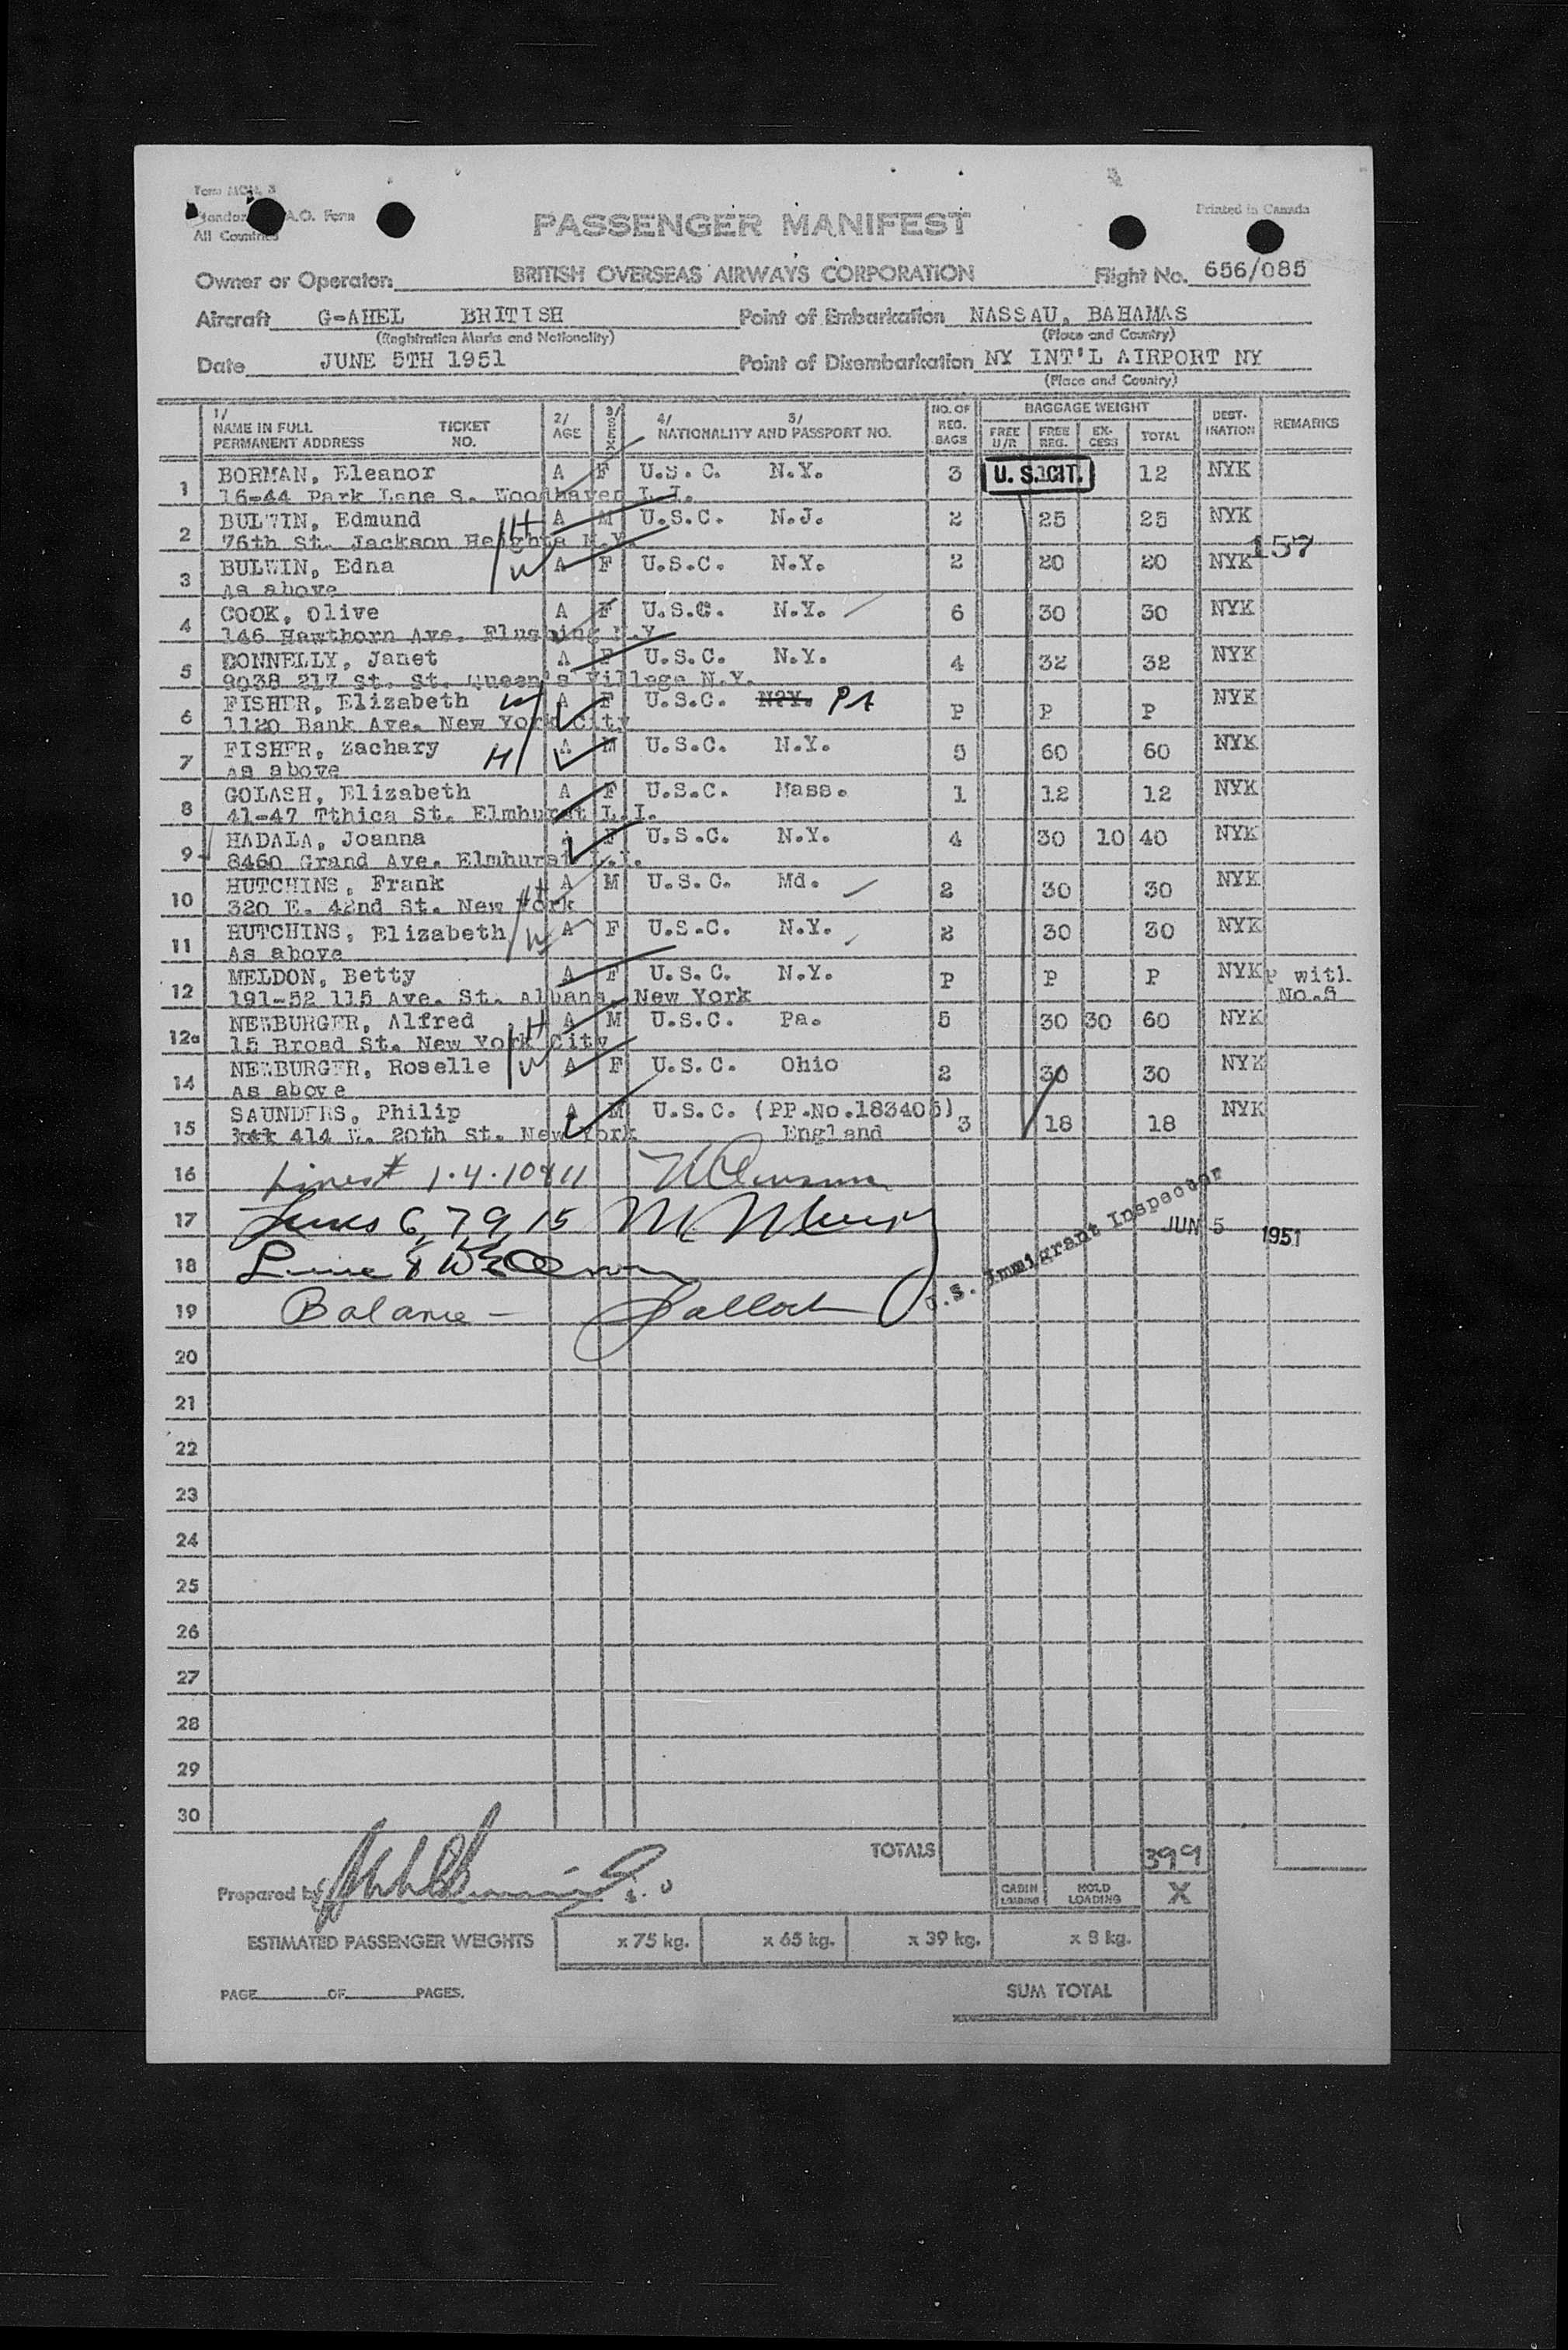 Form MCH. 3
Standard I.C.A.O. Form
All Countries
Printed in Canada
PASSENGER MANIFEST
Owner or Operator: BRITISH OVERSEAS AIRWAYS CORPORATION Flight No. 656/085
Aircraft G-AHEL BRITISH Point of Embarkation NASSAU, BAHAMAS
(Registration Marks and Nationality) (Place and Country)
Date JUNE 5TH 1951 Point of Disembarkation NY INT'L AIRPORT NY
(Place and Country)
1/ NAME IN FULL PERMANENT ADDRESS TICKET NO. 2/ AGE 3/ SEX 4/ 5/ NATIONALITY AND PASSPORT NO. NO. OF REG. BAGS BAGGAGE WEIGHT FREE U/R FREE REG. EX-CESS TOTAL DEST-INATION REMARKS
1 BORMAN, Eleanor A F U.S.C. N.Y. 3 U. S. CIT. 12 NYK
16-44 Park Lane S. Woodhaven L.I.
2 BULWIN, Edmund H A M U.S.C. N.J. 2 25 25 NYK
76th St. Jackson Heights N.Y.
157
3 BULWIN, Edna W A F U.S.C. N.Y. 2 20 20 NYK
As above
4 COOK, Olive A F U.S.C. N.Y. 6 30 30 NYK
146 Hawthorn Ave. Flushing N.Y
5 DONNELLY, Janet A F U.S.C. N.Y. 4 32 32 NYK
9038 217 St. St. Queen's Village N.Y.
6 FISHER, Elizabeth W A F U.S.C. N.Y. PA P P P NYK
1120 Bank Ave. New York City
7 FISHER, Zachary H A M U.S.C. N.Y. 5 60 60 NYK
As above
8 GOLASH, Elizabeth A F U.S.C. Mass. 1 12 12 NYK
41-47 Tthica St. Elmhurst L.I.
9 HADALA, Joanna A F U.S.C. N.Y. 4 30 10 40 NYK
8460 Grand Ave. Elmhurst L.I.
10 HUTCHINS, Frank H A M U.S.C. Md. 2 30 30 NYK
320 E. 42nd St. New York
11 HUTCHINS, Elizabeth W A F U.S.C. N.Y. 2 30 30 NYK
As above
12 MELDON, Betty A F U.S.C. N.Y. P P P NYK P with
191-52 115 Ave. St. Albans, New York No.5
12a NEWBURGER, Alfred H A M U.S.C. Pa. 5 30 30 60 NYK
15 Broad St. New York City
14 NEWBURGER, Roselle W A F U.S.C. Ohio 2 30 30 NYK
As above
15 SAUNDERS, Philip A M U.S.C. (PP.No.183405) 3 18 18 NYK
414 W. 20th St. New York England
16 Lines # 1.4.10 & 11
17 Lines 6, 7, 9, 15
U.S. Immigrant Inspector
JUN 5 1951
18 Line 8
19 Balance -
20
21
22
23
24
25
26
27
28
29
30
TOTALS 399
Prepared by
CABIN LOADING HOLD LOADING X
ESTIMATED PASSENGER WEIGHTS x 75 kg. x 65 kg. x 39 kg. x 8 kg.
PAGE OF PAGES. SUM TOTAL